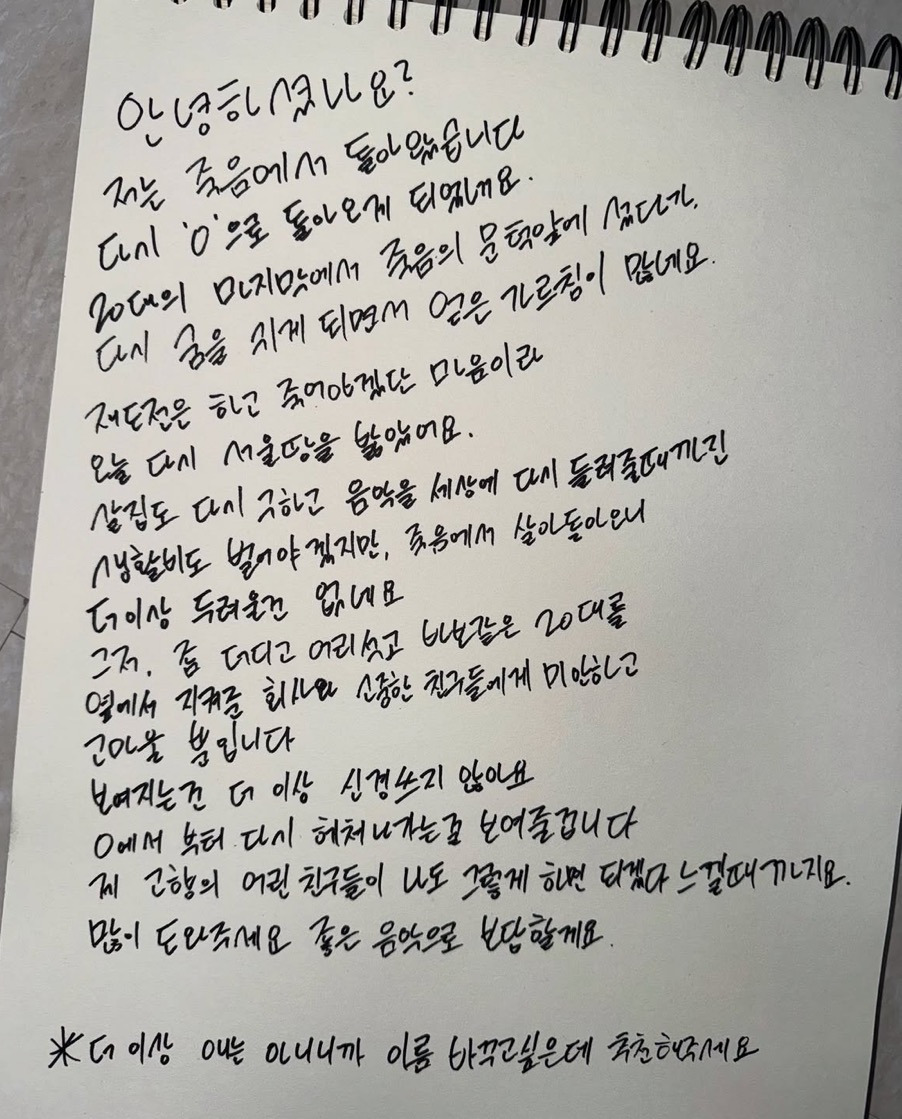 안녕하셨나요?
저는 죽음에서 돌아왔습니다
다시 '0'으로 돌아오게 되었네요.
20대의 마지막에서 죽음의 문턱앞에 섰다가,
다시 숨을 쉬게 되면서 얻은 가르침이 많네요.
재도전은 하고 죽어야겠단 마음이라
오늘 다시 서울땅을 밟았어요.
살집도 다시 구하고 음악을 세상에 다시 들려줄때까진
생활비도 벌어야 겠지만, 죽음에서 살아돌아오니
더이상 두려울건 없네요
그저, 좀 더디고 어리석고 바보같은 20대를
옆에서 지켜준 회사와 소중한 친구들에게 미안하고
고마울 뿐입니다
보여지는건 더 이상 신경쓰지 않아요
0에서 부터 다시 헤쳐나가는걸 보여줄겁니다
제 고향의 어린 친구들이 나도 그렇게 하면 되겠다 느낄때 까지요.
많이 도와주세요 좋은 음악으로 보답할게요.
*더 이상 애는 아니니까 이름 바꾸고싶은데 추천해주세요